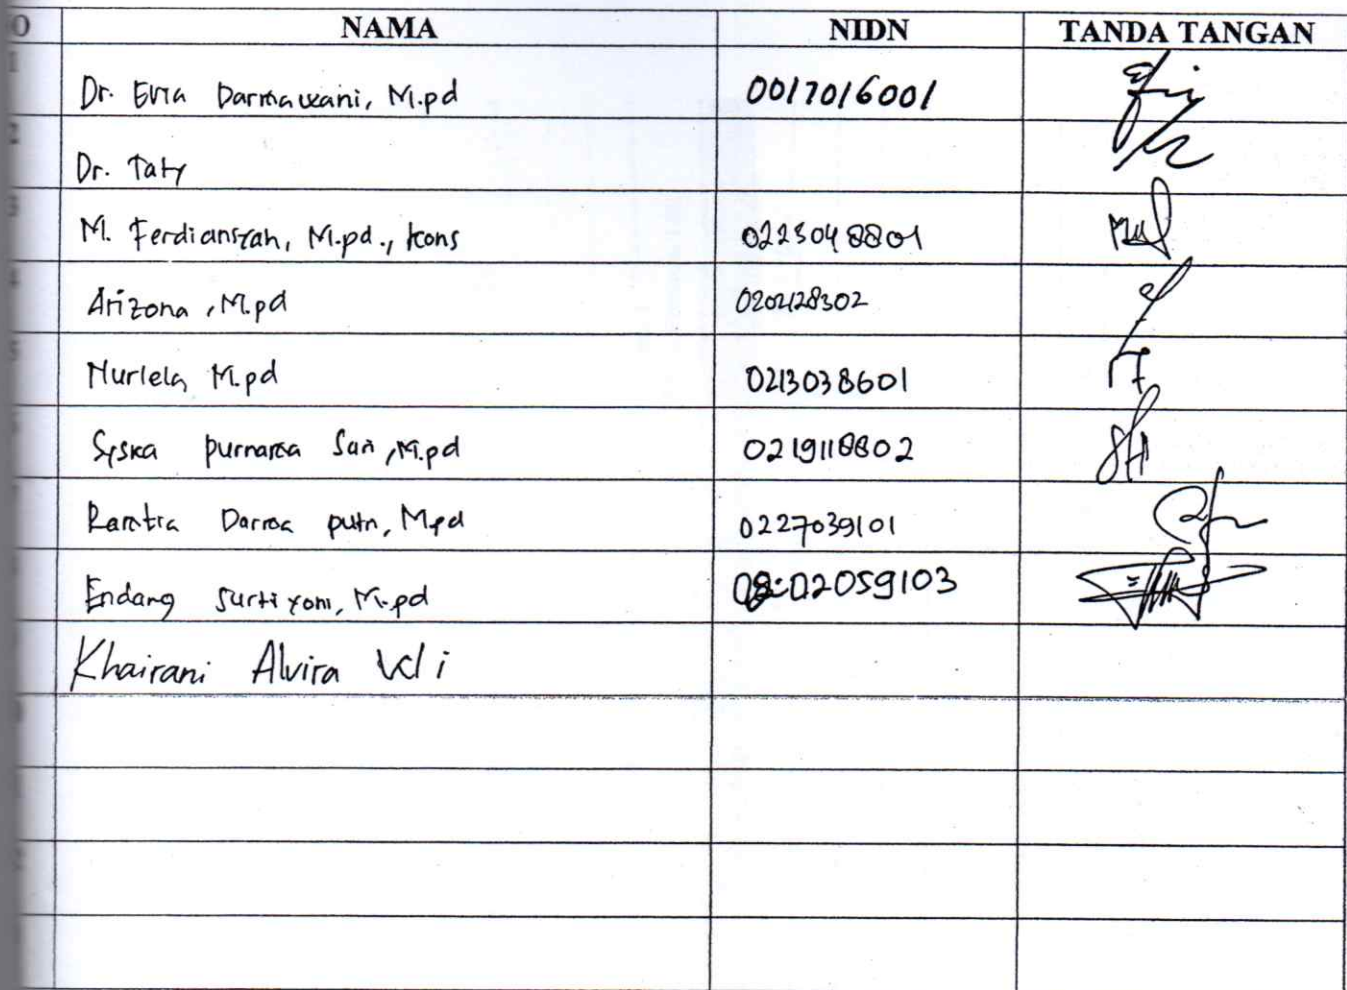 O NAMA NIDN TANDA TANGAN
1 Dr. Evia Darmawani, M.pd 0017016001
2 Dr. Taty
3 M. Ferdiansyah, M.pd., Kons 0223048801
4 Arizona, M.pd 0202128302
5 Nurlela M.pd 0213038601
Syska purnama Sari, M.pd 0219118802
Ramtia Darma putri, M.pd 0227039101
Endang Surtiyoni, M.pd 02059103
Khairani Alvira